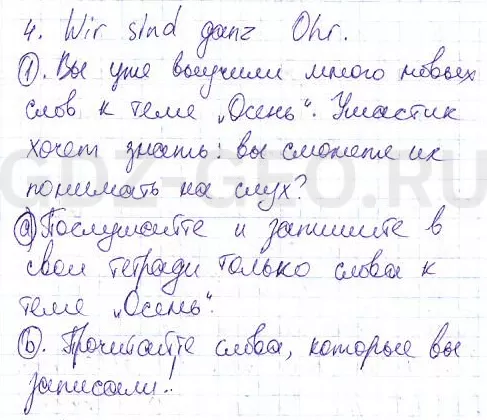 4. Wir sind ganz Ohr.
①. Вы уже выучили много новых
слов к теме „Осень“. Ушастик
хочет знать: вы сможете их
понимать на слух?
ⓐ Послушайте и запишите в
свои тетради только слова к
теме „Осень“.
ⓑ. Прочитайте слова, которые вы
записали!